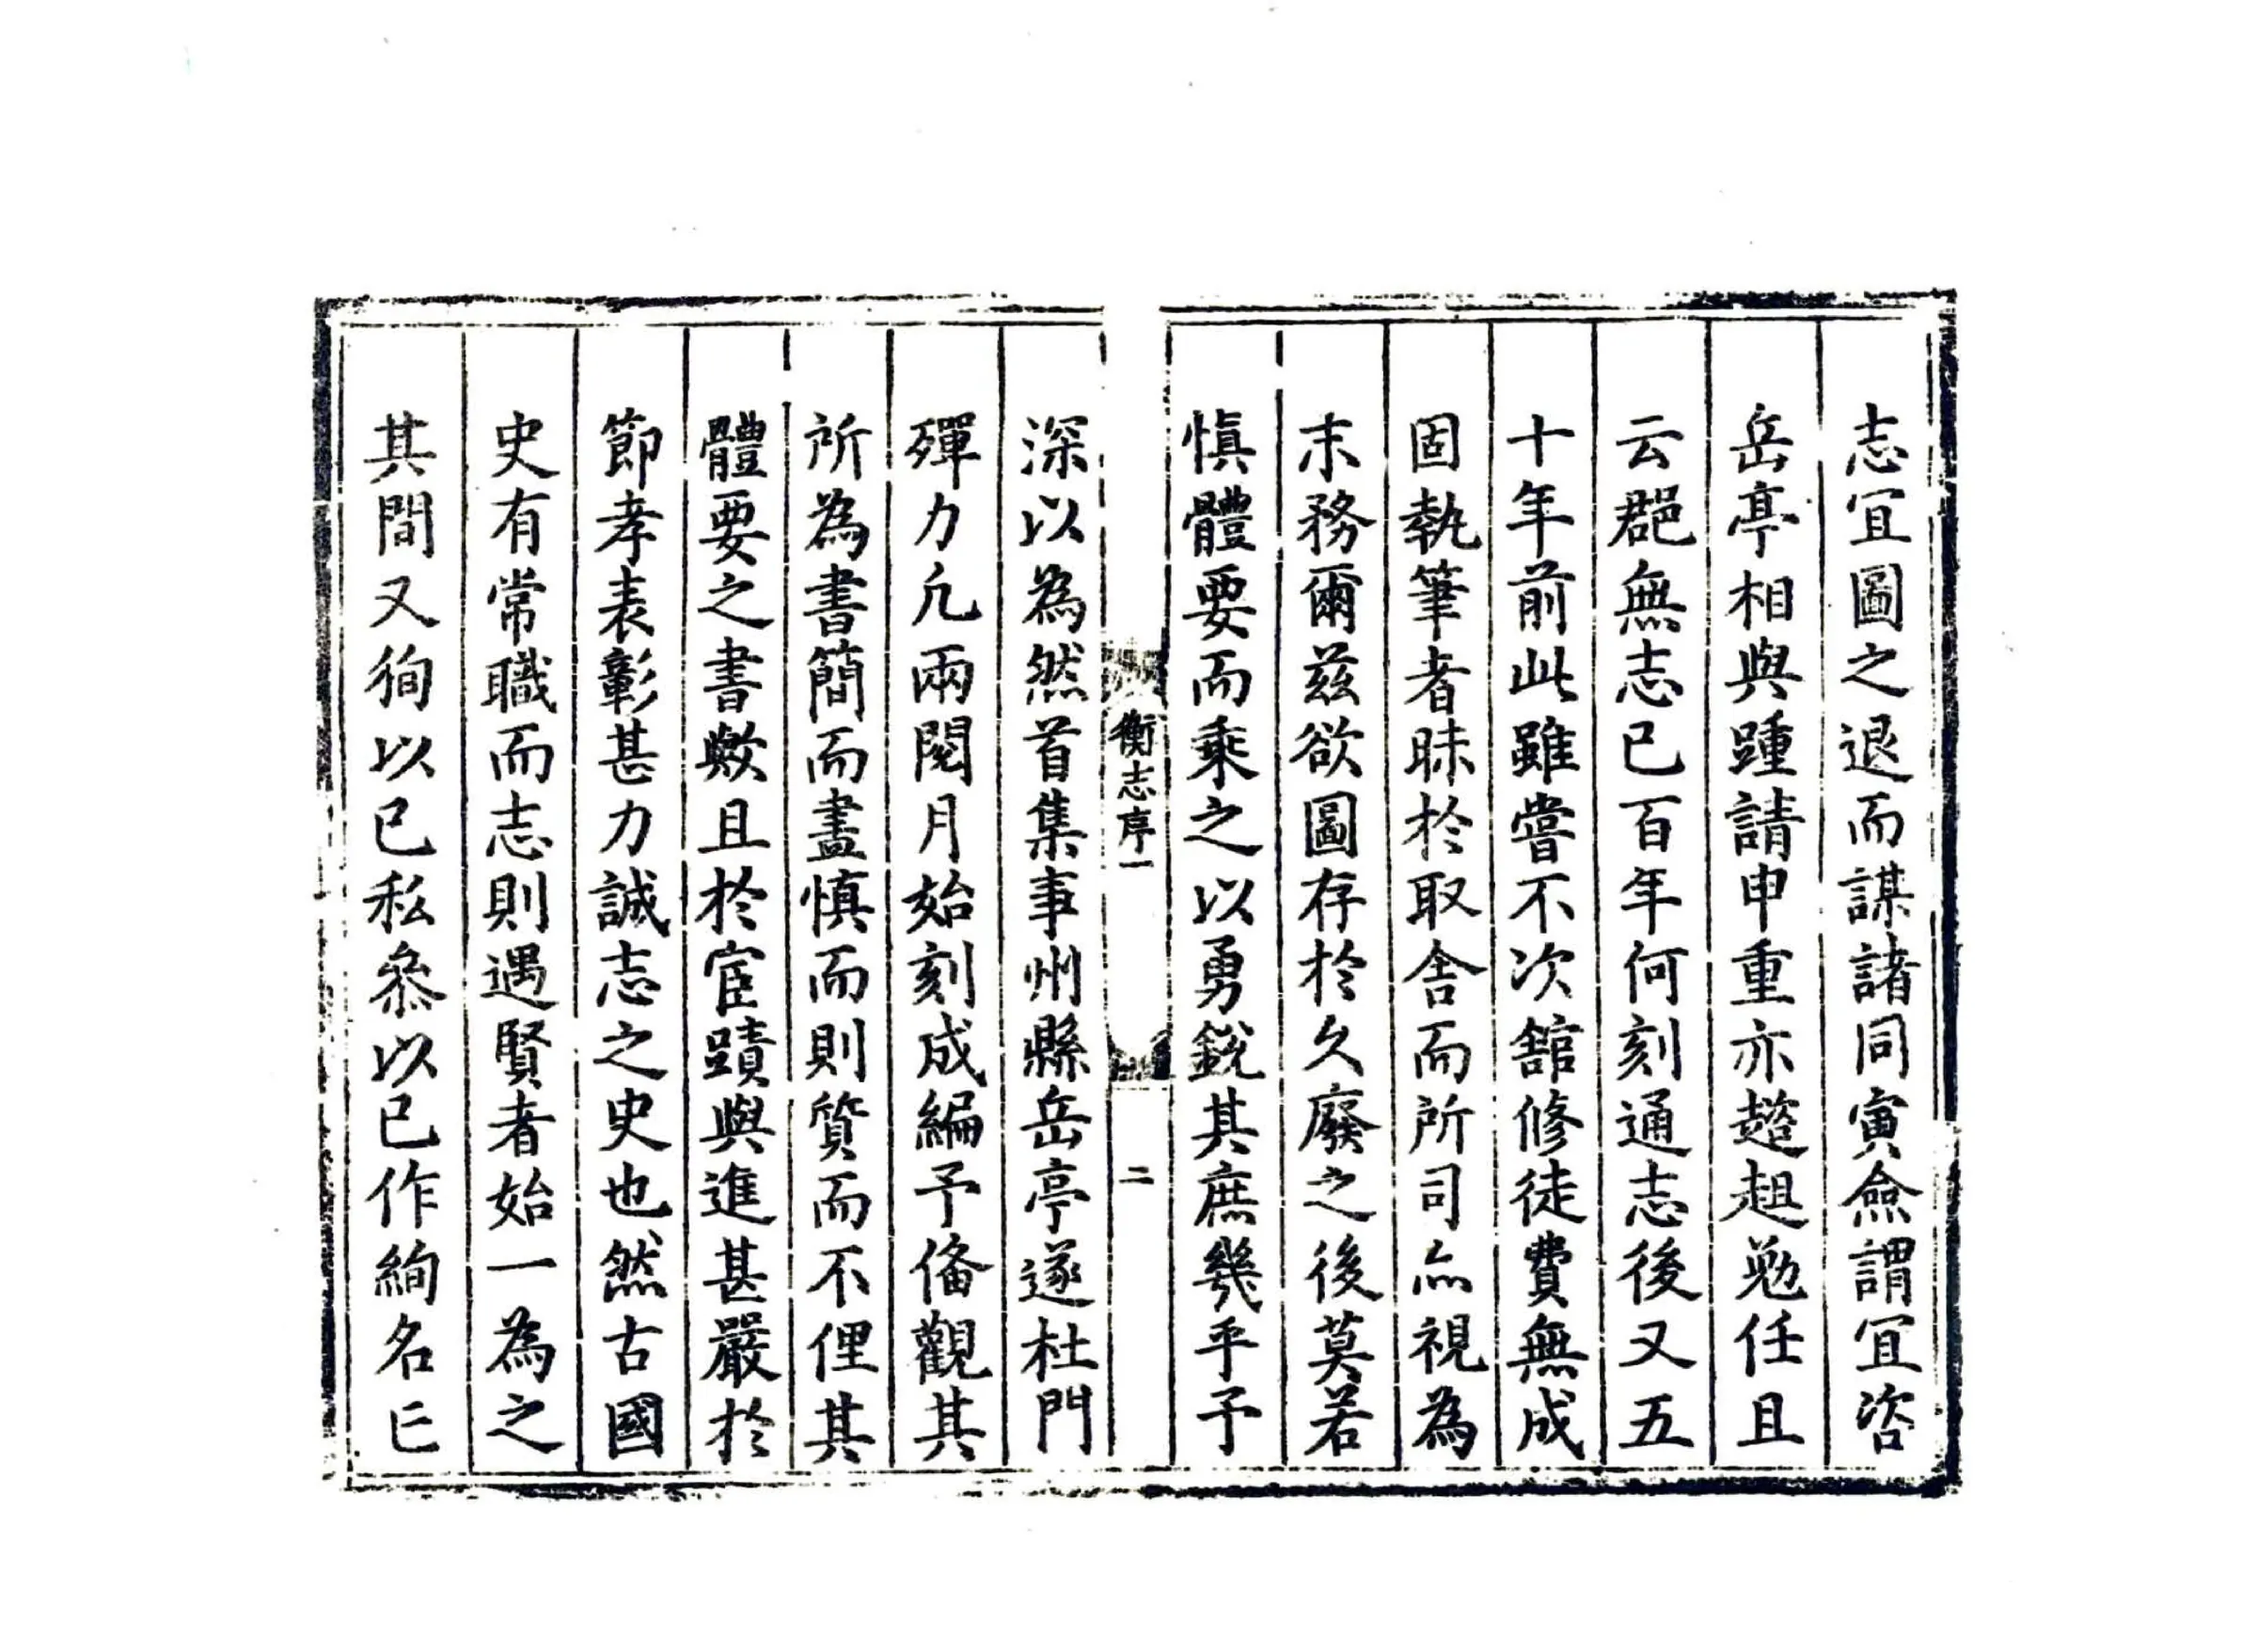 志宜圖之退而謀諸同寅僉謂宜咨
岳亭相與踵請申重亦趦趄勉任且
云郡無志已百年何刻通志後又五
十年前此雖嘗不次舘修徒費無成
固執筆者昧於取舍而所司亦視為
末務爾茲欲圖存於久廢之後莫若
慎體要而乘之以勇銳其庶幾乎予
衡志序一
二
深以為然首集事州縣岳亭遂杜門
殫力凢兩閱月始刻成編予俻觀其
所為書簡而盡慎而則質而不俚其
體要之書歟且於宦蹟與進甚嚴於
節孝表彰甚力誠志之史也然古國
史有常職而志則遇賢者始一為之
其間又徇以已私叅以已作絢名已